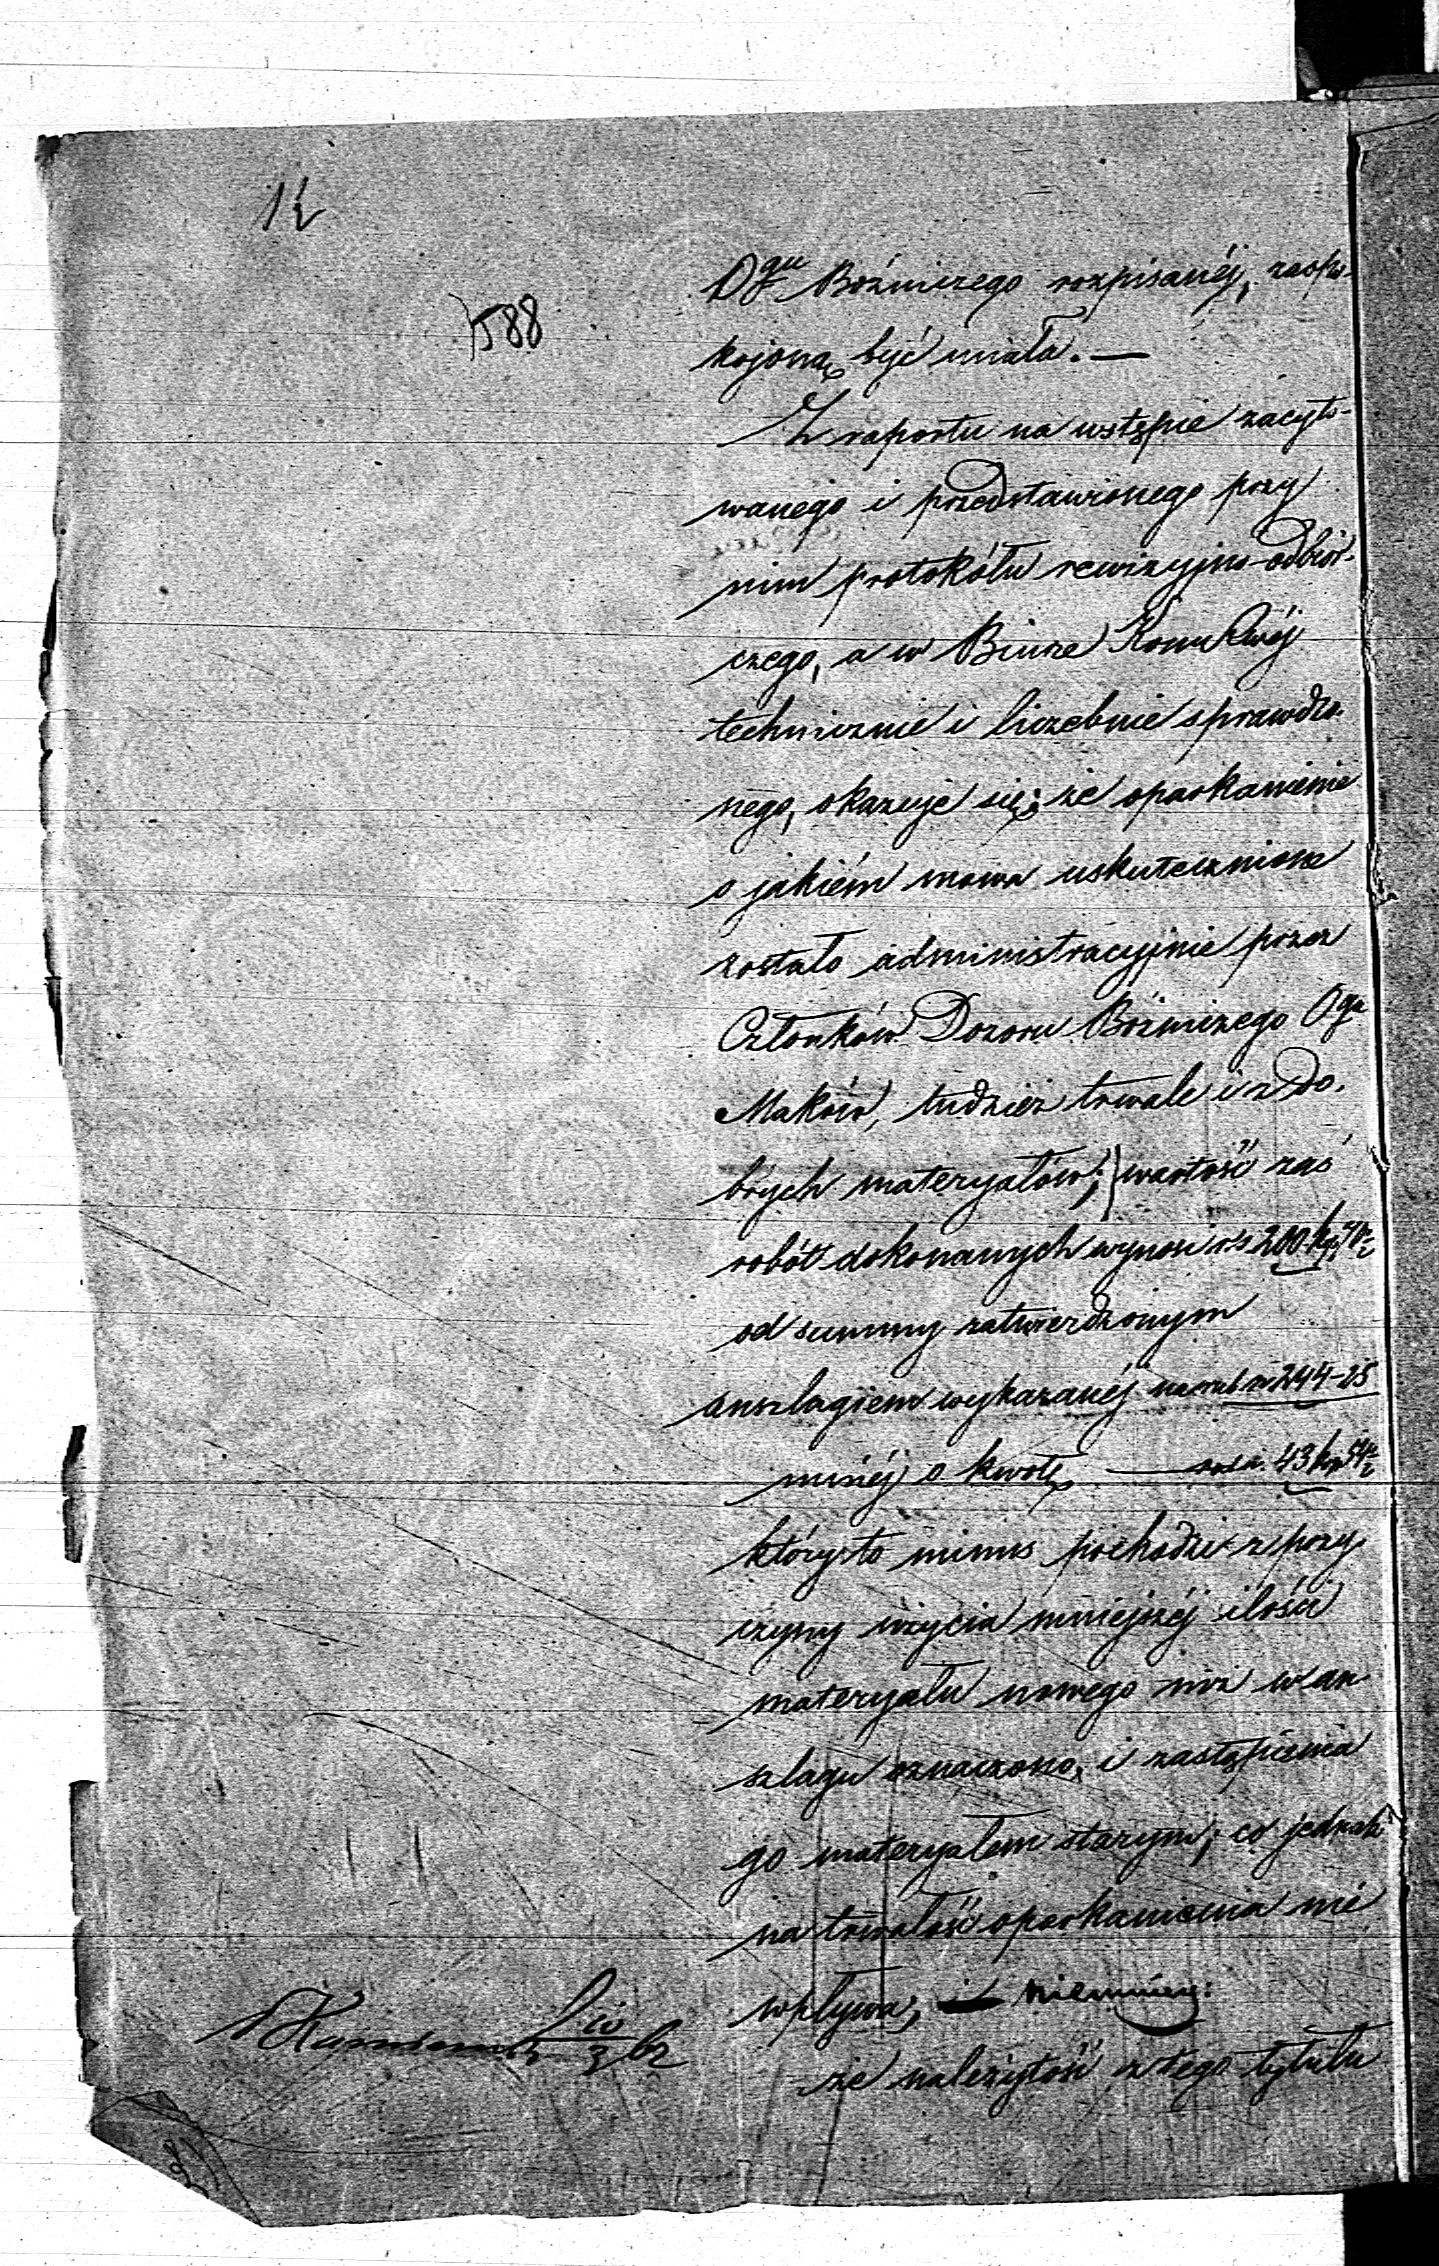 588
Ogu Bóźniczego rozpisanéj, zaspo-
kojoną być miała. —
Z raportu na wstępie zacyto-
wanego i przedstawionego przy
nim protokółu rewizyjno-odbior-
czego, a w Biurze
technicznie i liczebnie sprawdzo-
nego, okazuje się; że oparkanienie
o jakiém mowa uskutecznione
zostało administracyjnie przez
Członków Dozoru Bóźniczego Ogu
Maków, tudzież trwale i z do-
brych materyałów; wartość zaś
robót dokonanych wynosi rs 200 kp
od summy zatwierdzonym
anszlagiem wykazanéj na rub sr 244-25
mniéj o kwotę — 43 kp
który to minus pochodzi z przy-
czyny użycia mniejszéj ilości
materyału nowego niż w an-
szlagu oznaczono, i zastąpienia
go materyałem starym; co jednak
na trwałość oparkanienia nie
wpływa; niemniéj:
że należytość z tego tytułu